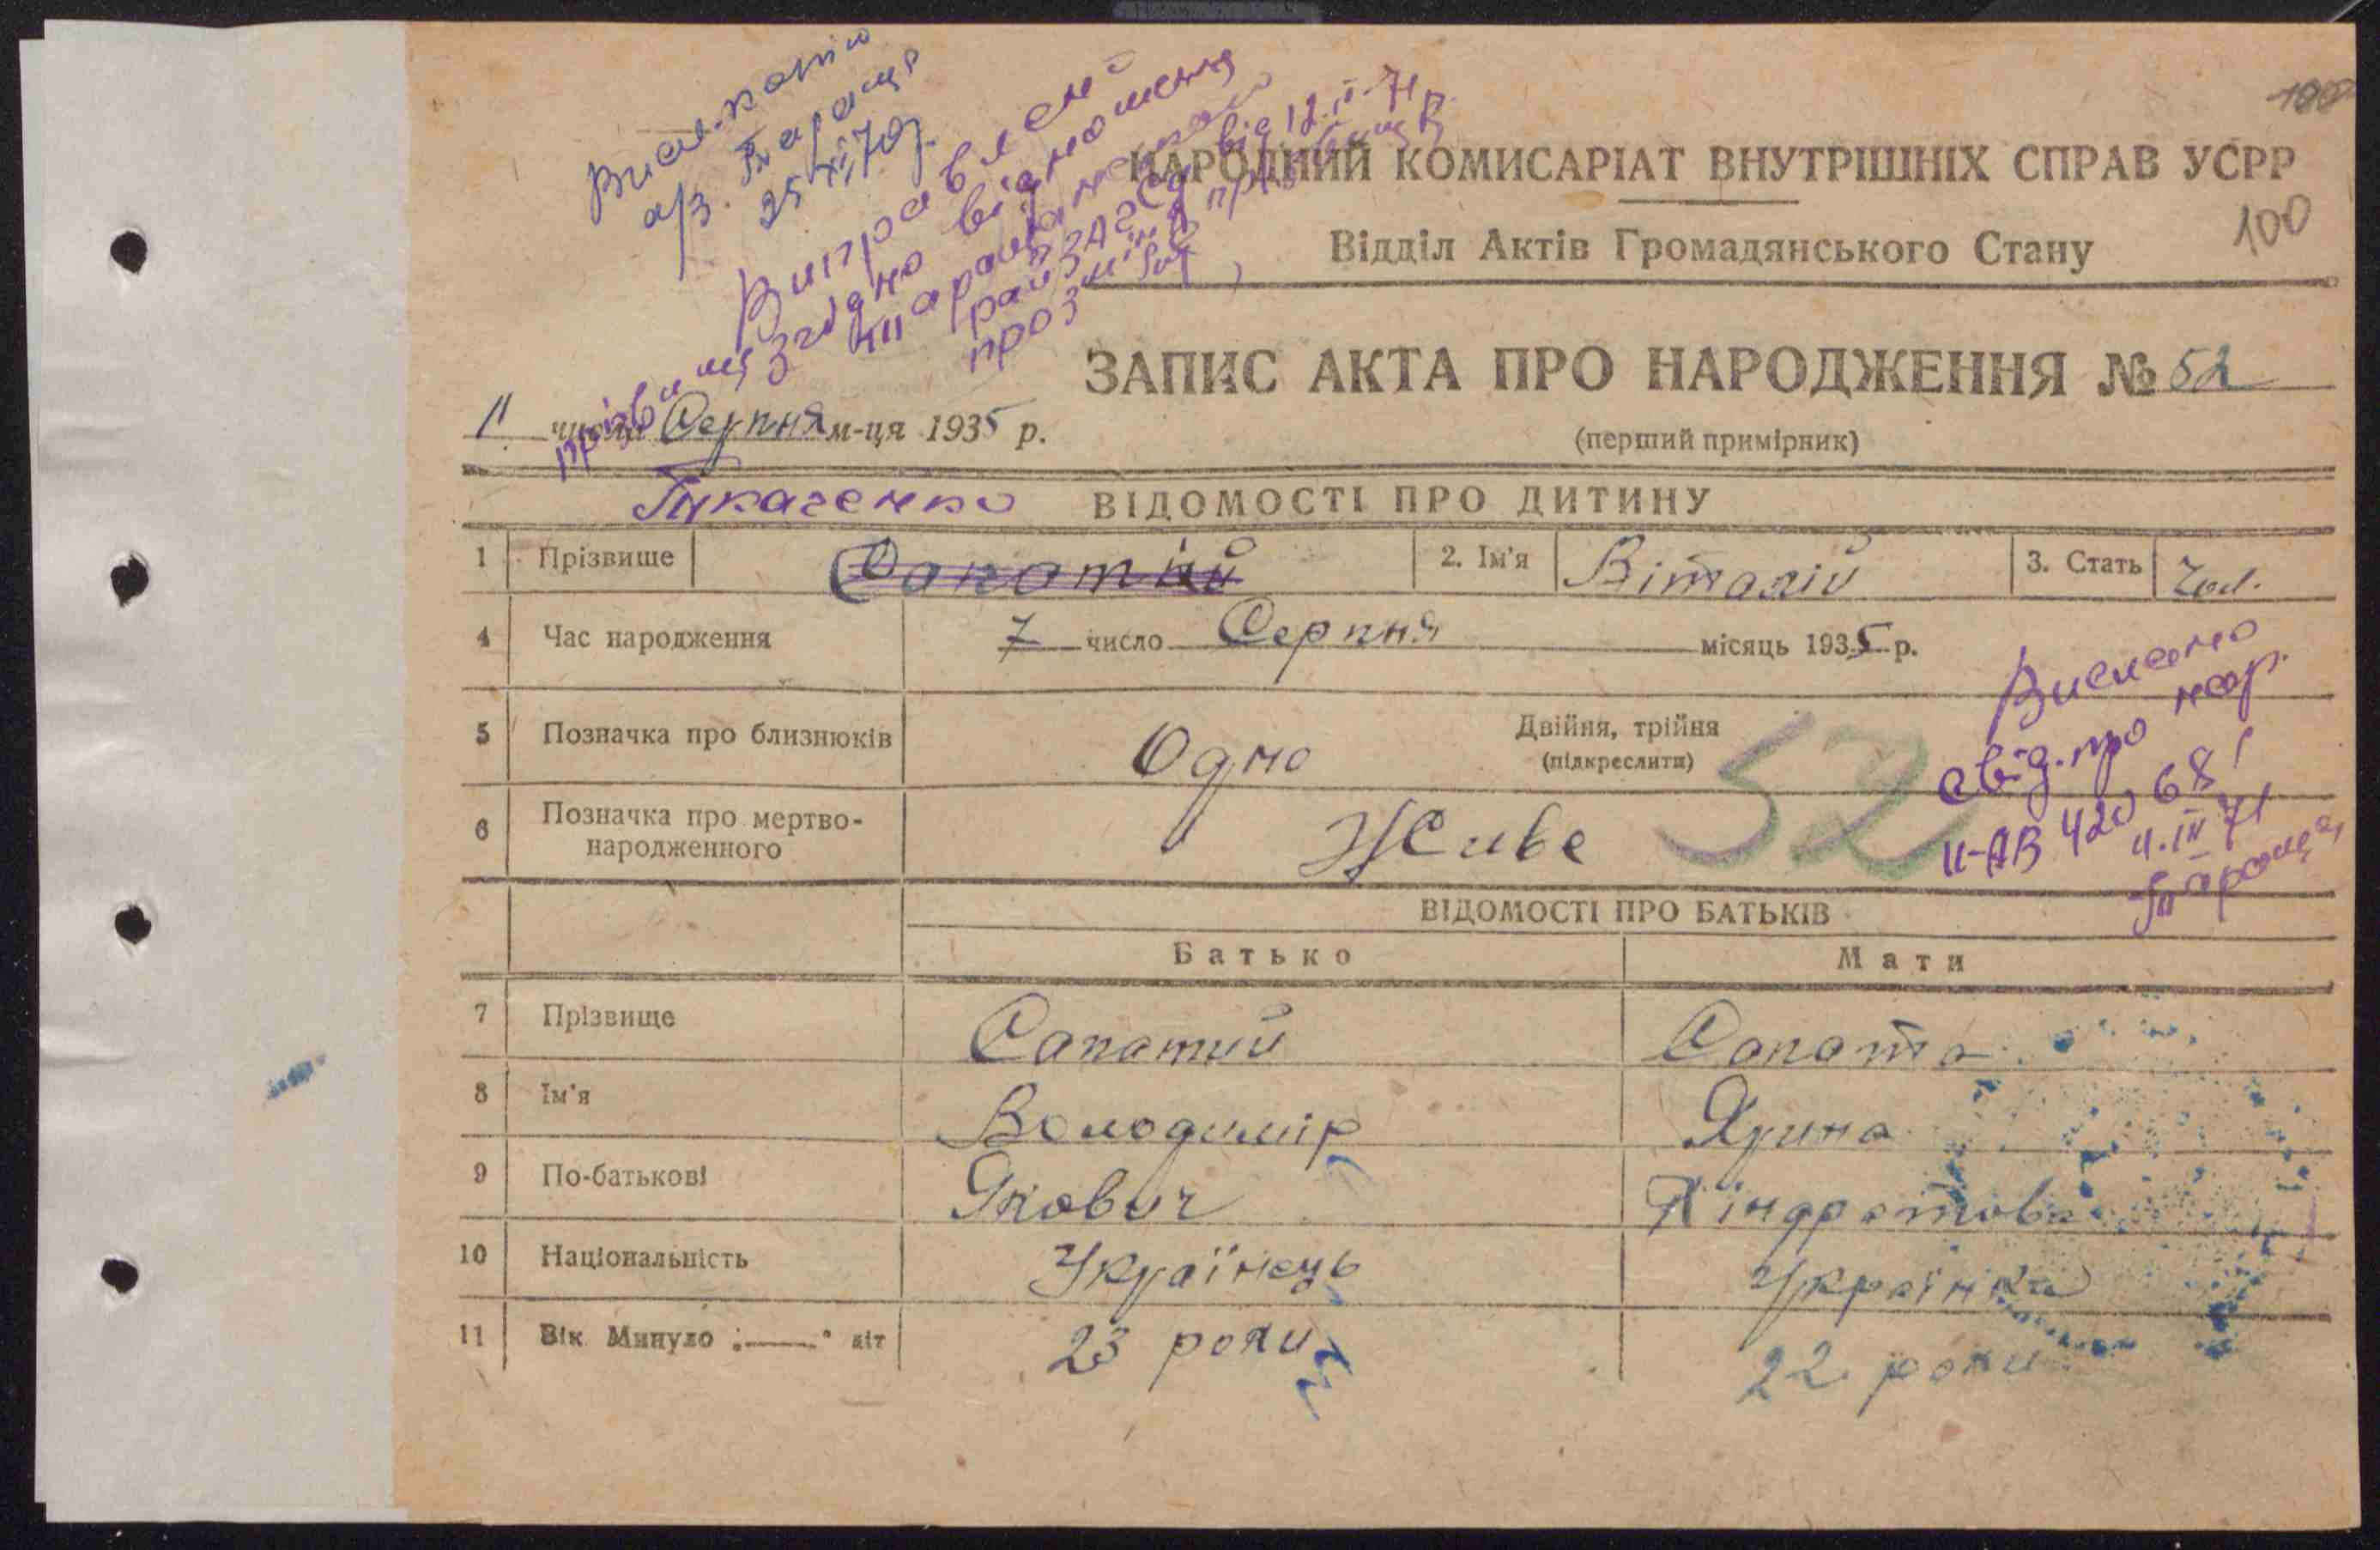 100
100
НАРОДНИЙ КОМИСАРІАТ ВНУТРІШНІХ СПРАВ УСРР
Відділ Актів Громадянського Стану
25 XII 70р.
Виправлені
прізвище згідно відношення
від 12.II-71р.
ЗАПИС АКТА ПРО НАРОДЖЕННЯ № 52
(перший примірник)
11 числа Серпня м-ця 1935 р.
Ткаченко
ВІДОМОСТІ ПРО ДИТИНУ
1 Прізвище Сапатий 2. Ім'я Віталій 3. Стать Чол.
4 Час народження 7 число Серпня місяць 1935 р.
5 Позначка про близнюків Одно Двійня, трійня
(підкреслити)
6 Позначка про мертво-
народженного Живе
52
Вислано
свід. про нар.
II-АВ 420681
4.III 71
Тараща
ВІДОМОСТІ ПРО БАТЬКІВ
Батько Мати
7 Прізвище Сапатий Сапата
8 Ім'я Володимір Ярина
9 По-батькові Якович Кіндратова
10 Національність Українець Українка
11 Вік Минуло „——" літ 23 роки 22 роки